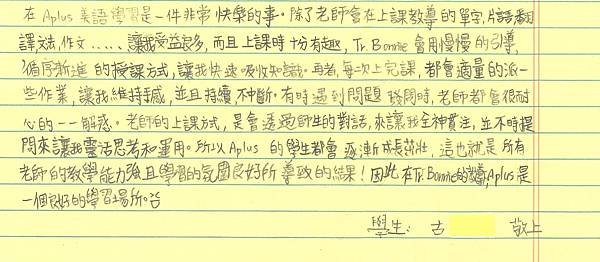 在 Aplus 美語學習是一件非常快樂的事。除了老師會在上課教導的單字，片語翻
譯，文法，作文.....讓我受益良多，而且上課時十分有趣，Tr. Bonnie 會用慢慢的引導，
循序漸進的授課方式，讓我快速吸收知識。再者，每次上完課，都會適量的派一
些作業，讓我維持手感，並且持續，不中斷。有時遇到問題發問時，老師都會很耐
心的一一解惑。老師的上課方式，是會透過師生的對話，來讓我全神貫注，並不時提
問來讓我靈活思考和運用。所以Aplus 的學生都會逐漸成長茁壯，這也就是所有
老師的教學能力強且學習的氛圍良好所導致的結果！因此，在Tr. Bonnie的教導，Aplus是
一個良好的學習場所。
學生： 古 敬上